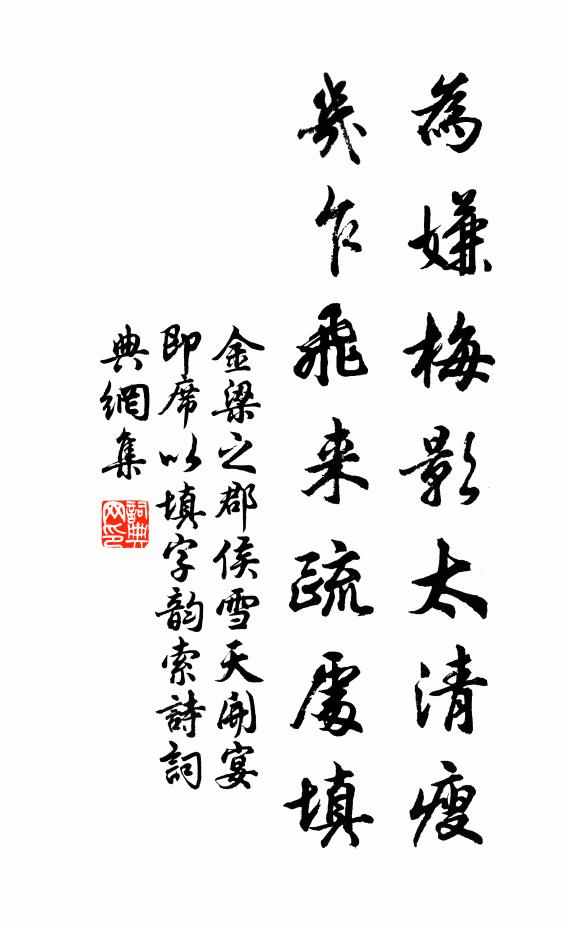 為嫌梅影太清瘦
幾片飛来疏處填
金梁之郡侯雪天開宴
即席以填字韵索詩詞
典網集
詞典
网印